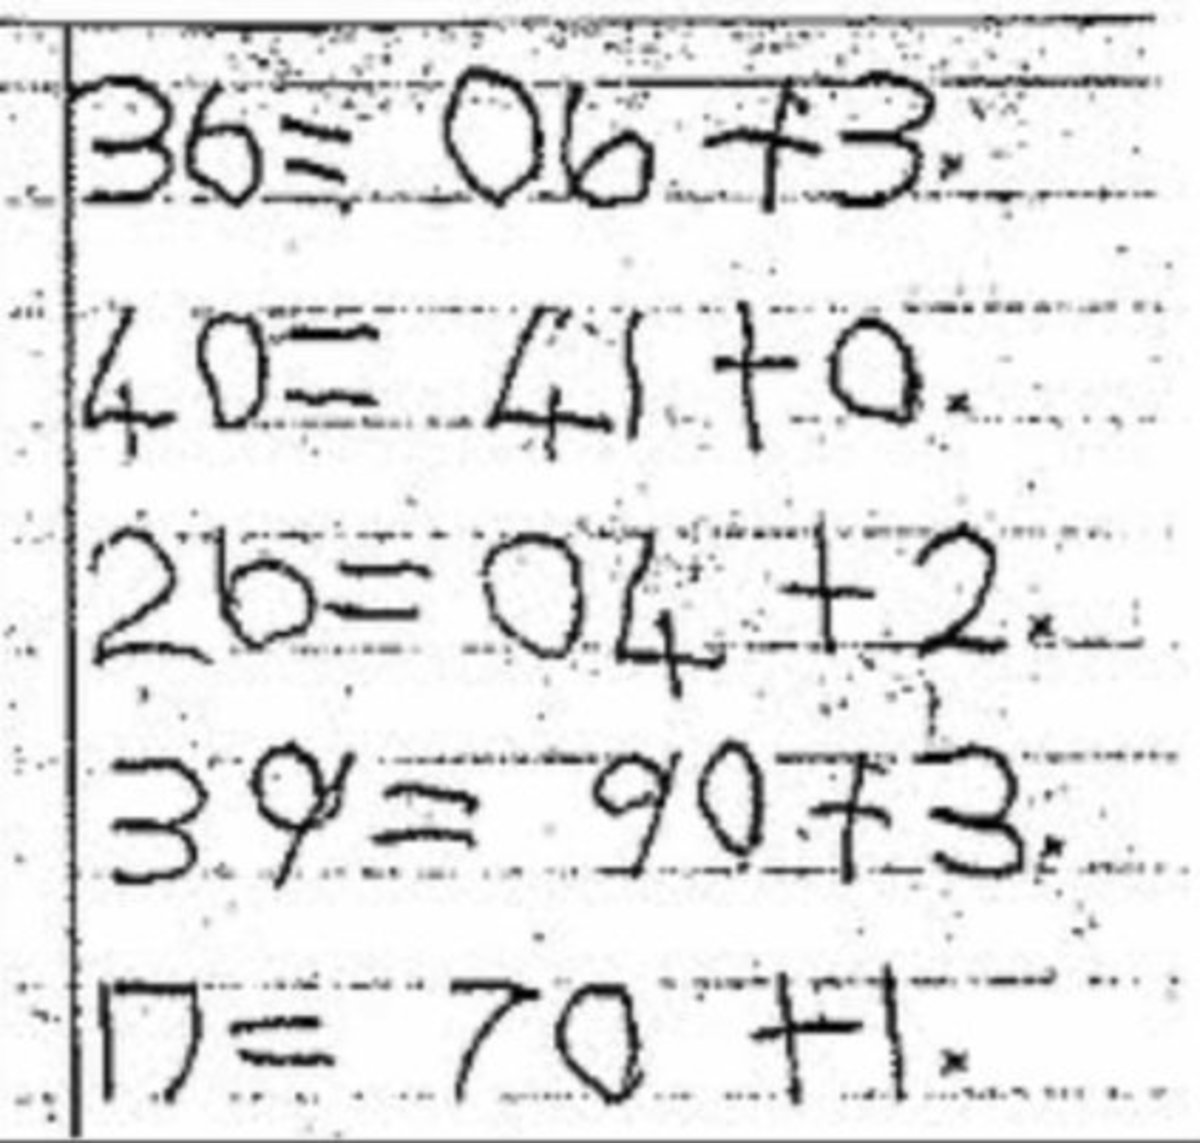 36 = 06 + 3 x
40 = 41 + 0 x
26 = 04 + 2 x
39 = 90 + 3 x
17 = 70 + 1 x